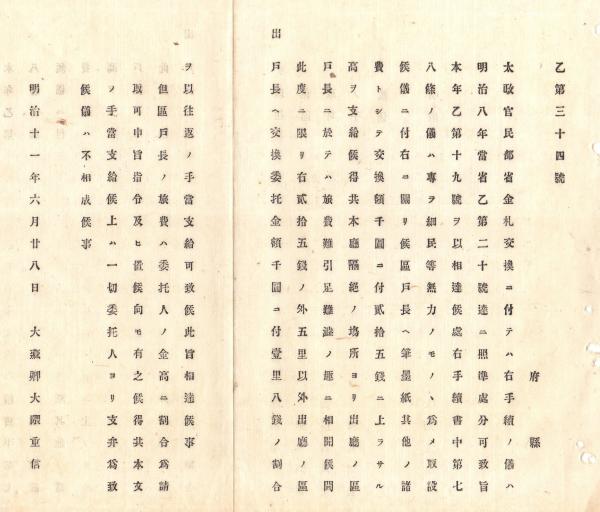 乙第三十四號
府縣
太政官民部省金札交換ニ付テハ右手續ノ儀ハ
明治八年當省乙第二十號達ニ照準處分可致旨
本年乙第十九號ヲ以相達候處右手續書中第七
八條ノ儀ハ專ヲ細民等無力ノモノヽ爲メ取設
候儀ニ付右ニ關リ候區戸長ヘ筆墨紙其他ノ諸
費トシテ交換額千圓ニ付貳拾五錢ニ上ラサル
高ヲ支給候得共本廳隔絶ノ塲所ヨリ出廳ノ區
戸長ニ於テハ旅費難引足難澁ノ趣ニ相聞候間
此度ニ限リ右貳拾五錢ノ外五里以外出廳ノ區
戸長ヘ交換委托金額千圓ニ付壹里八錢ノ割合
出
ヲ以往返ノ手當支給可致候此旨相達候事
但區戸長ノ旅費ハ委托人ノ金高ニ割合爲請
取可申旨指令及ヒ置候向モ有之候得共本文
ノ手當支給候上ハ一切委托人ヨリ支弁爲致
候儀ハ不相成候事
明治十一年六月廿八日 大藏卿大隈重信